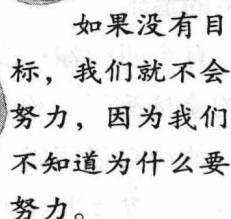 如果没有目
标，我们就不会
努力，因为我们
不知道为什么要
努力。